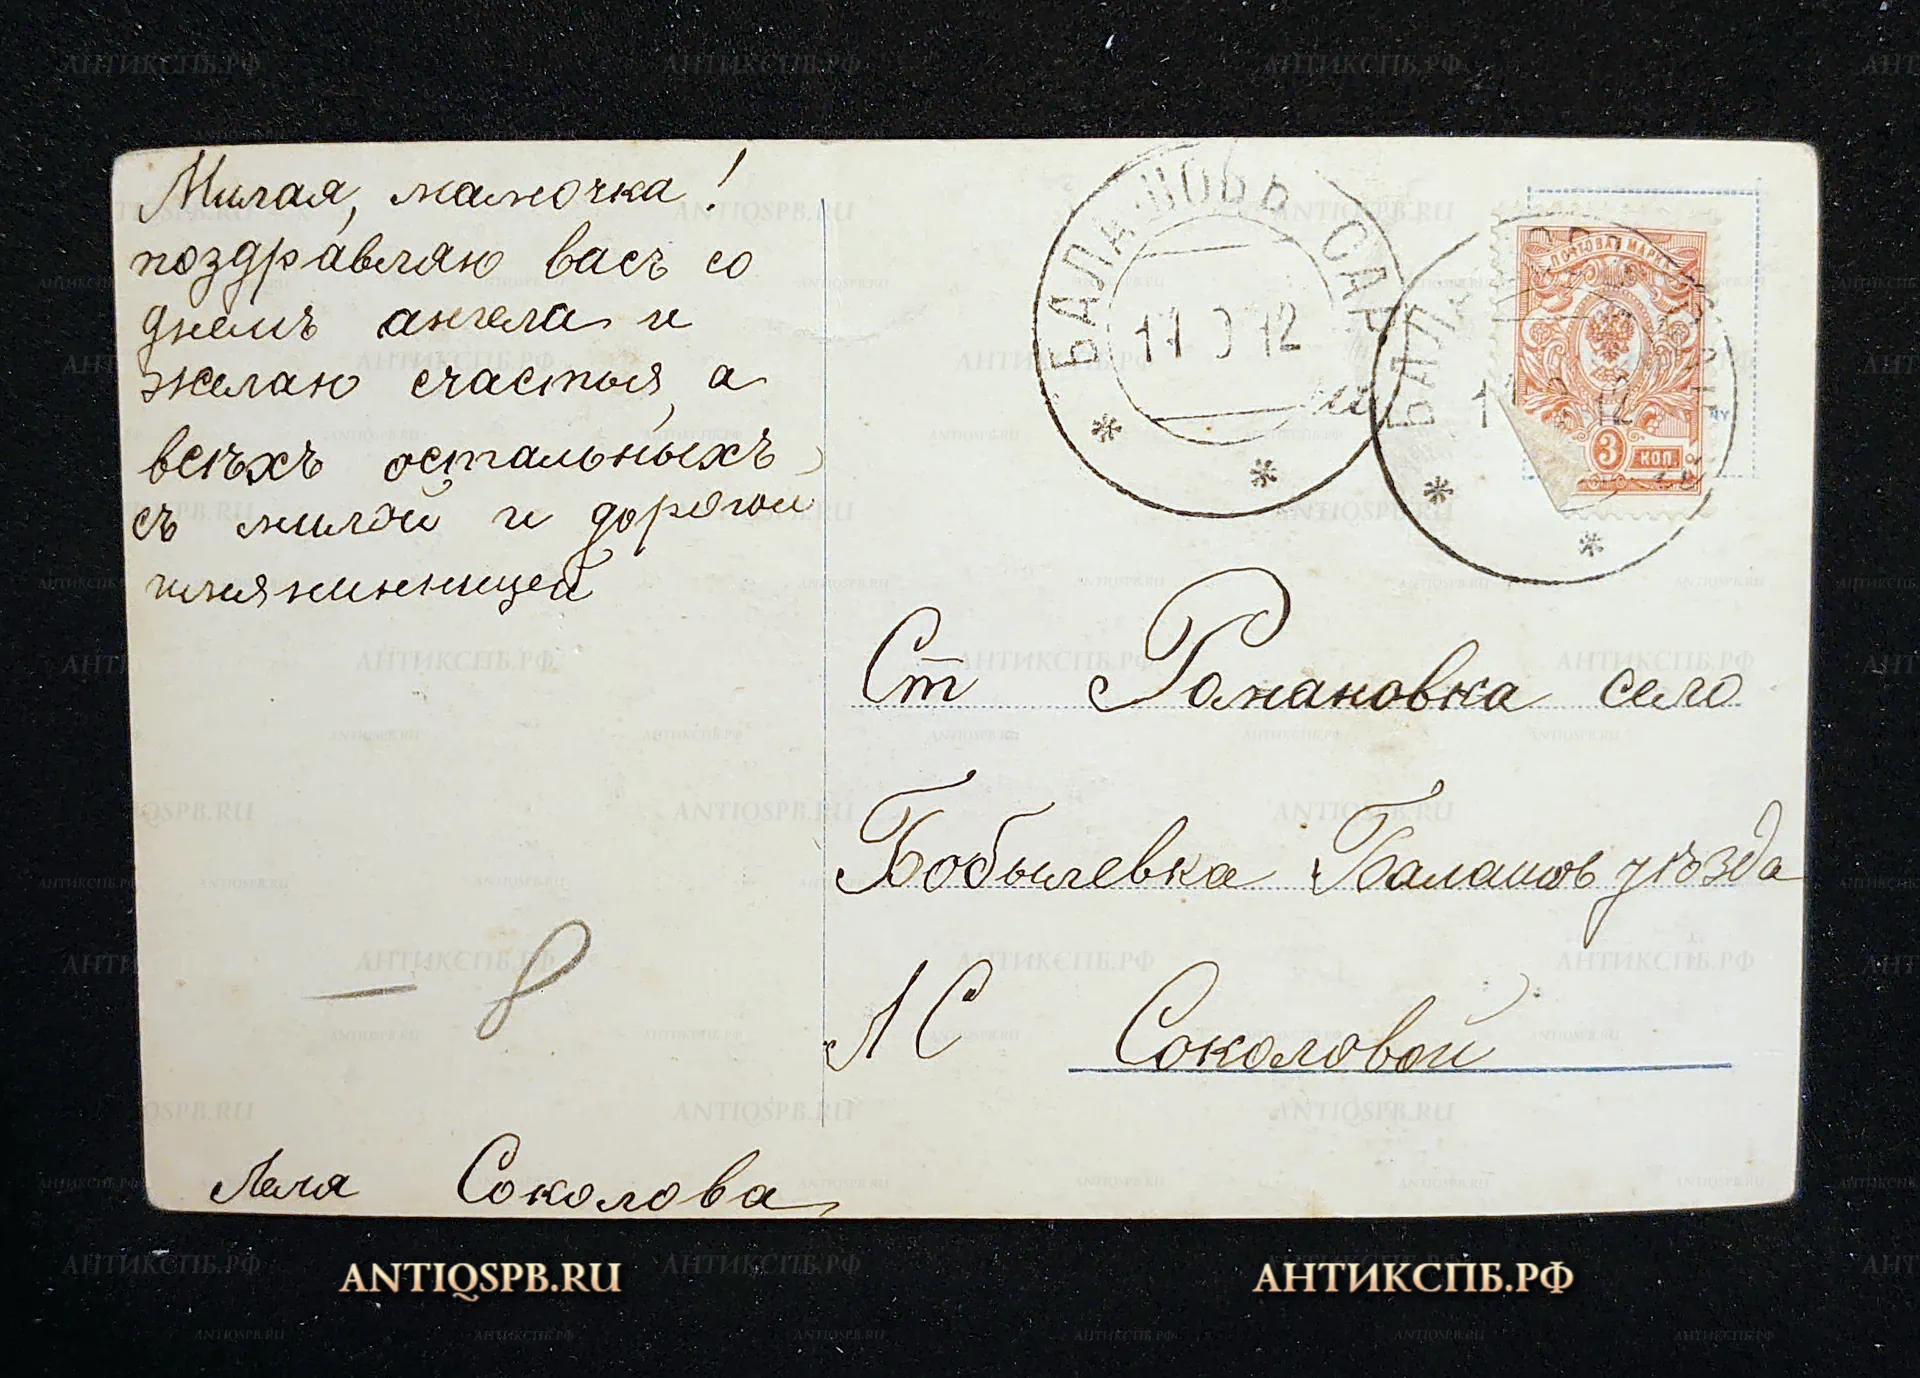 Милая, мамочка!
поздравляю васъ со
днемъ ангела и
желаю счастья, а
всѣхъ остальныхъ
съ милой и дорогой
имянинницей
Леля Соколова
— 8
БАЛАШОВЪ САР
12
БАЛА
12
ПОЧТОВАЯ МАРКА
3 КОП.
Ст Романовка село
Бобылевка Балашов уѣзда
Л С Соколовой
ANTIQSPB.RU
АНТИКСПБ.РФ